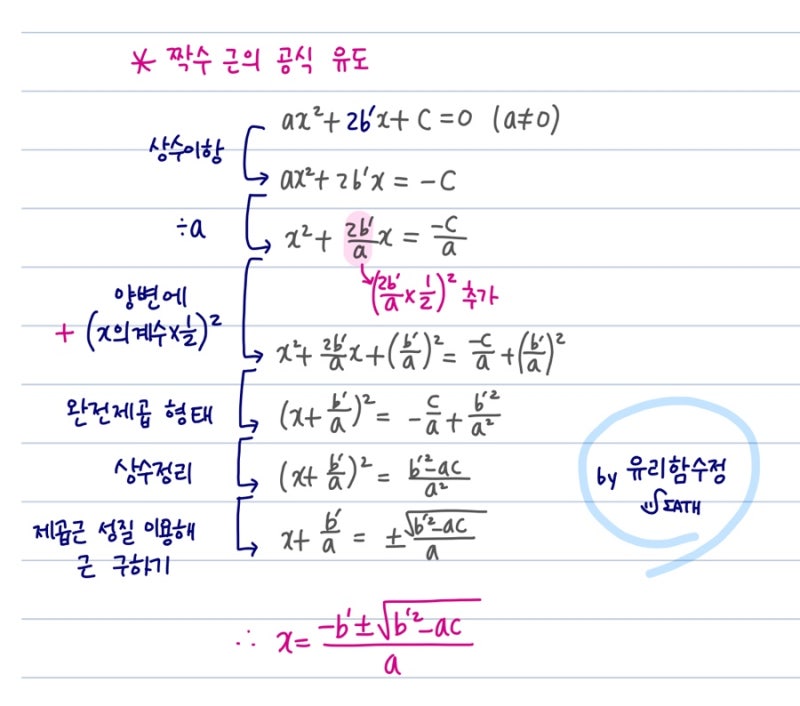 * 짝수 근의 공식 유도
ax²+2b′x+C=0 (a≠0)
상수이항
ax²+2b′x=-C
÷a
x²+2b′/a x=-C/a
(2b′/a×1/2)² 추가
양변에
+(x의계수×1/2)²
x²+2b′/a x+(b′/a)²=-C/a+(b′/a)²
완전제곱 형태
(x+b′/a)²=-C/a+b′²/a²
상수정리
(x+b′/a)²=b′²-ac/a²
제곱근 성질 이용해
근 구하기
x+b′/a=±√b′²-ac/a
by 유리함수정
ΣATH
∴ x=-b′±√b′²-ac/a